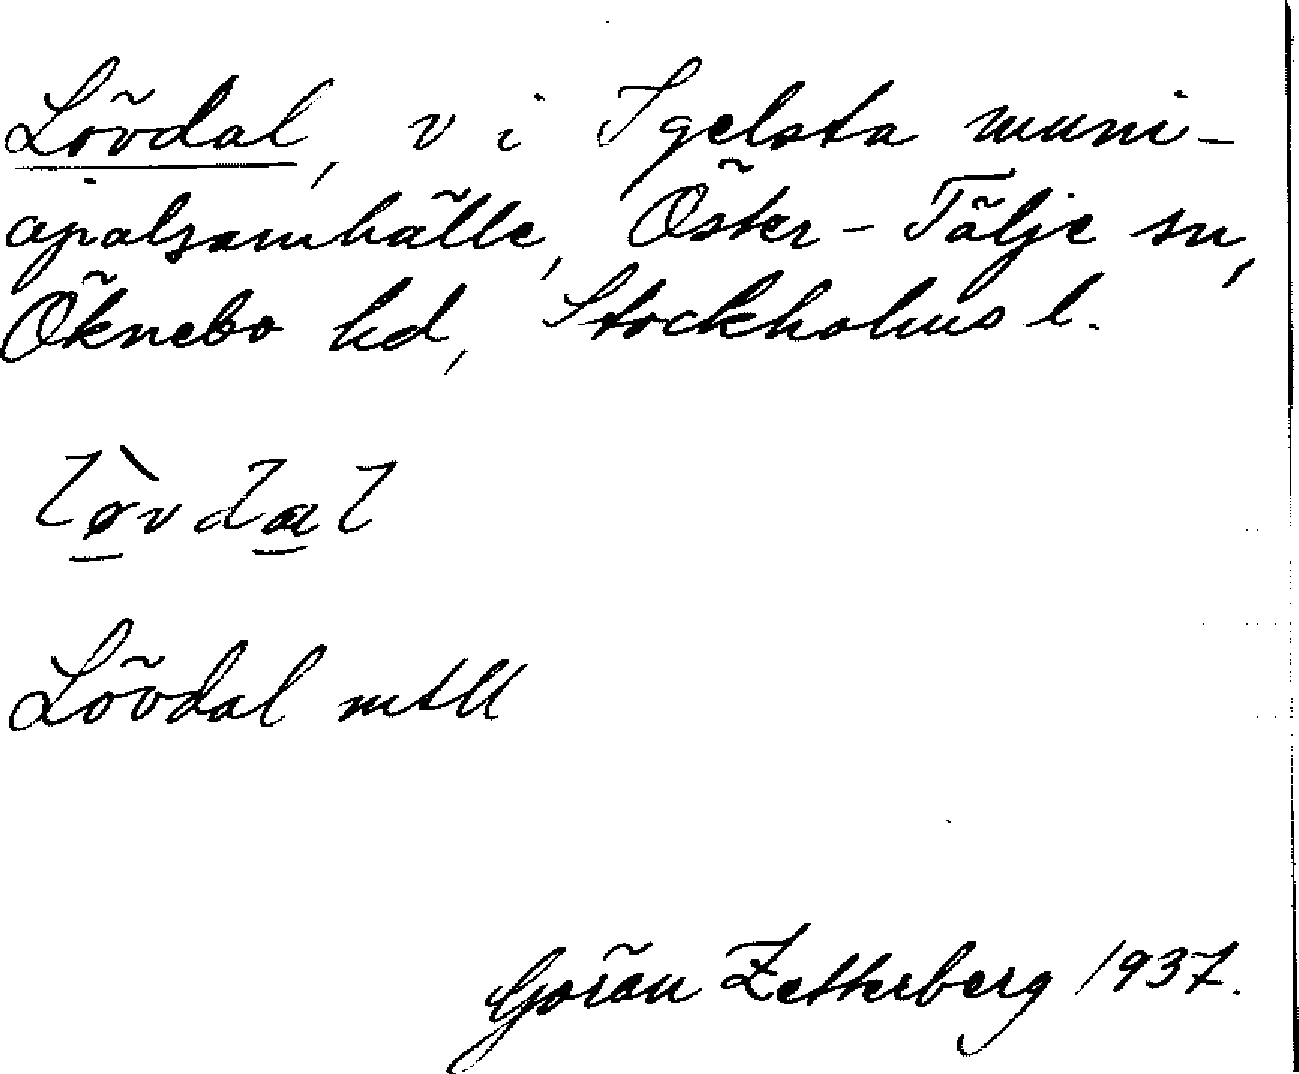 Lövdal, v i Igelsta muni-
cipalsamhälle, Öster-Tälje sn,
Öknebo hd, Stockholms l.
lø̀vdal
Lövdal mtll
Göran Zetterberg 1937.